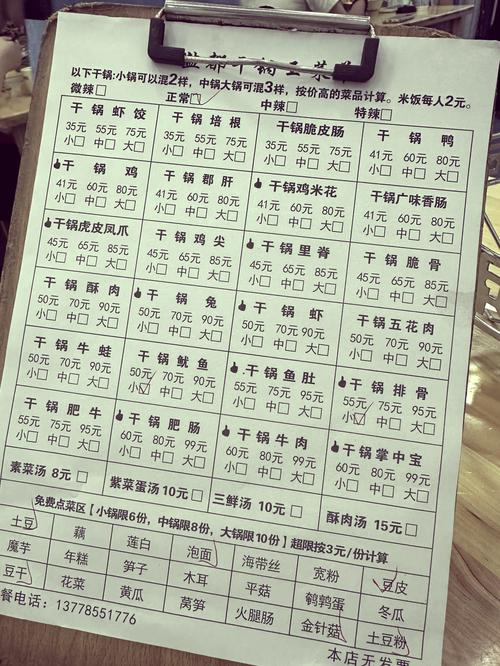 盐都干锅王菜单
以下干锅:小锅可以混2样，中锅大锅可混3样，按价高的菜品计算。米饭每人2元。
微辣□ 正常□ 中辣□ 特辣□
干锅虾饺 干锅培根 干锅脆皮肠 干锅鸭
35元 55元 75元 35元 55元 75元 35元 55元 75元 41元 60元 80元
小□ 中□ 大□ 小□ 中□ 大□ 小□ 中□ 大□ 小□ 中□ 大□
干锅鸡 干锅郡肝 干锅鸡米花 干锅广味香肠
41元 60元 80元 41元 60元 80元 41元 60元 80元 41元 60元 80元
小□ 中□ 大□ 小□ 中□ 大□ 小□ 中□ 大□ 小□ 中□ 大□
干锅虎皮凤爪 干锅鸡尖 干锅里脊 干锅脆骨
45元 65元 85元 45元 65元 85元 45元 65元 85元 45元 65元 85元
小□ 中□ 大□ 小□ 中□ 大□ 小□ 中□ 大□ 小□ 中□ 大□
干锅酥肉 干锅兔 干锅虾 干锅五花肉
50元 70元 90元 50元 70元 90元 50元 70元 90元 50元 70元 90元
小□ 中□ 大□ 小□ 中□ 大□ 小□ 中□ 大□ 小□ 中□ 大□
干锅牛蛙 干锅鱿鱼 干锅鱼肚 干锅排骨
50元 70元 90元 50元 70元 90元 55元 75元 95元 55元 75元 95元
小□ 中□ 大□ 小□ 中□ 大□ 小□ 中□ 大□ 小□ 中□ 大□
干锅肥牛 干锅肥肠 干锅牛肉 干锅掌中宝
55元 75元 95元 60元 80元 99元 60元 80元 99元 60元 80元 99元
小□ 中□ 大□ 小□ 中□ 大□ 小□ 中□ 大□ 小□ 中□ 大□
素菜汤 8元□ 紫菜蛋汤10元□ 三鲜汤 10元□ 酥肉汤 15元□
免费点菜区【小锅限6份，中锅限8份，大锅限10份】超限按3元/份计算
土豆 藕 莲白 泡面 海带丝 宽粉 豆皮
魔芋 年糕 笋子 木耳 平菇 鹌鹑蛋 冬瓜
豆干 花菜 黄瓜 莴笋 火腿肠 金针菇 土豆粉
餐电话：13778551776
本店无发票